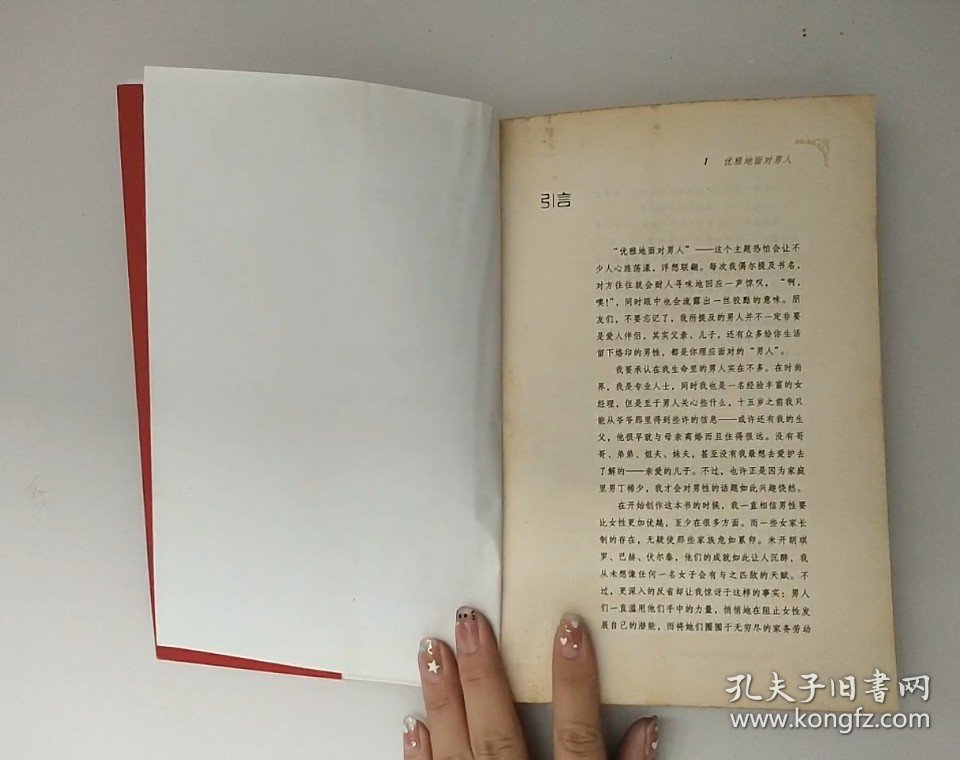 1 优雅地面对男人
引言
“优雅地面对男人”——这个主题恐怕会让不
少人心旌荡漾，浮想联翩。每次我偶尔提及书名，
对方往往就会耐人寻味地回应一声惊叹，“啊，
噢！”，同时眼中也会流露出一丝狡黠的意味。朋
友们，不要忘记了，我所提及的男人并不一定非要
是爱人伴侣，其实父亲、儿子，还有众多给你生活
留下烙印的男性，都是你理应面对的“男人”。
我要承认在我生命里的男人实在不多。在时尚
界，我是专业人士，同时我也是一名经验丰富的女
经理，但是至于男人关心些什么，十五岁之前我只
能从爷爷那里得到些许的信息——或许还有我的生
父，他很早就与母亲离婚而且住得很远。没有哥
哥、弟弟、姐夫、妹夫，甚至没有我最想去爱护去
了解的——亲爱的儿子。不过，也许正是因为家庭
里男丁稀少，我才会对男性的话题如此兴趣饶然。
在开始创作这本书的时候，我一直相信男性要
比女性更加优越，至少在很多方面。而一些女家长
制的存在，无疑使那些家族危如累卵。米开朗琪
罗、巴赫、伏尔泰，他们的成就如此让人沉醉，我
从未想像任何一名女子会有与之匹敌的天赋。不
过，更深入的反省却让我惊讶于这样的事实：男人
们一直滥用他们手中的力量，悄悄地在阻止女性发
展自己的潜能，而将她们圈囿于无穷尽的家务劳动
孔夫子旧书网
www.kongfz.com